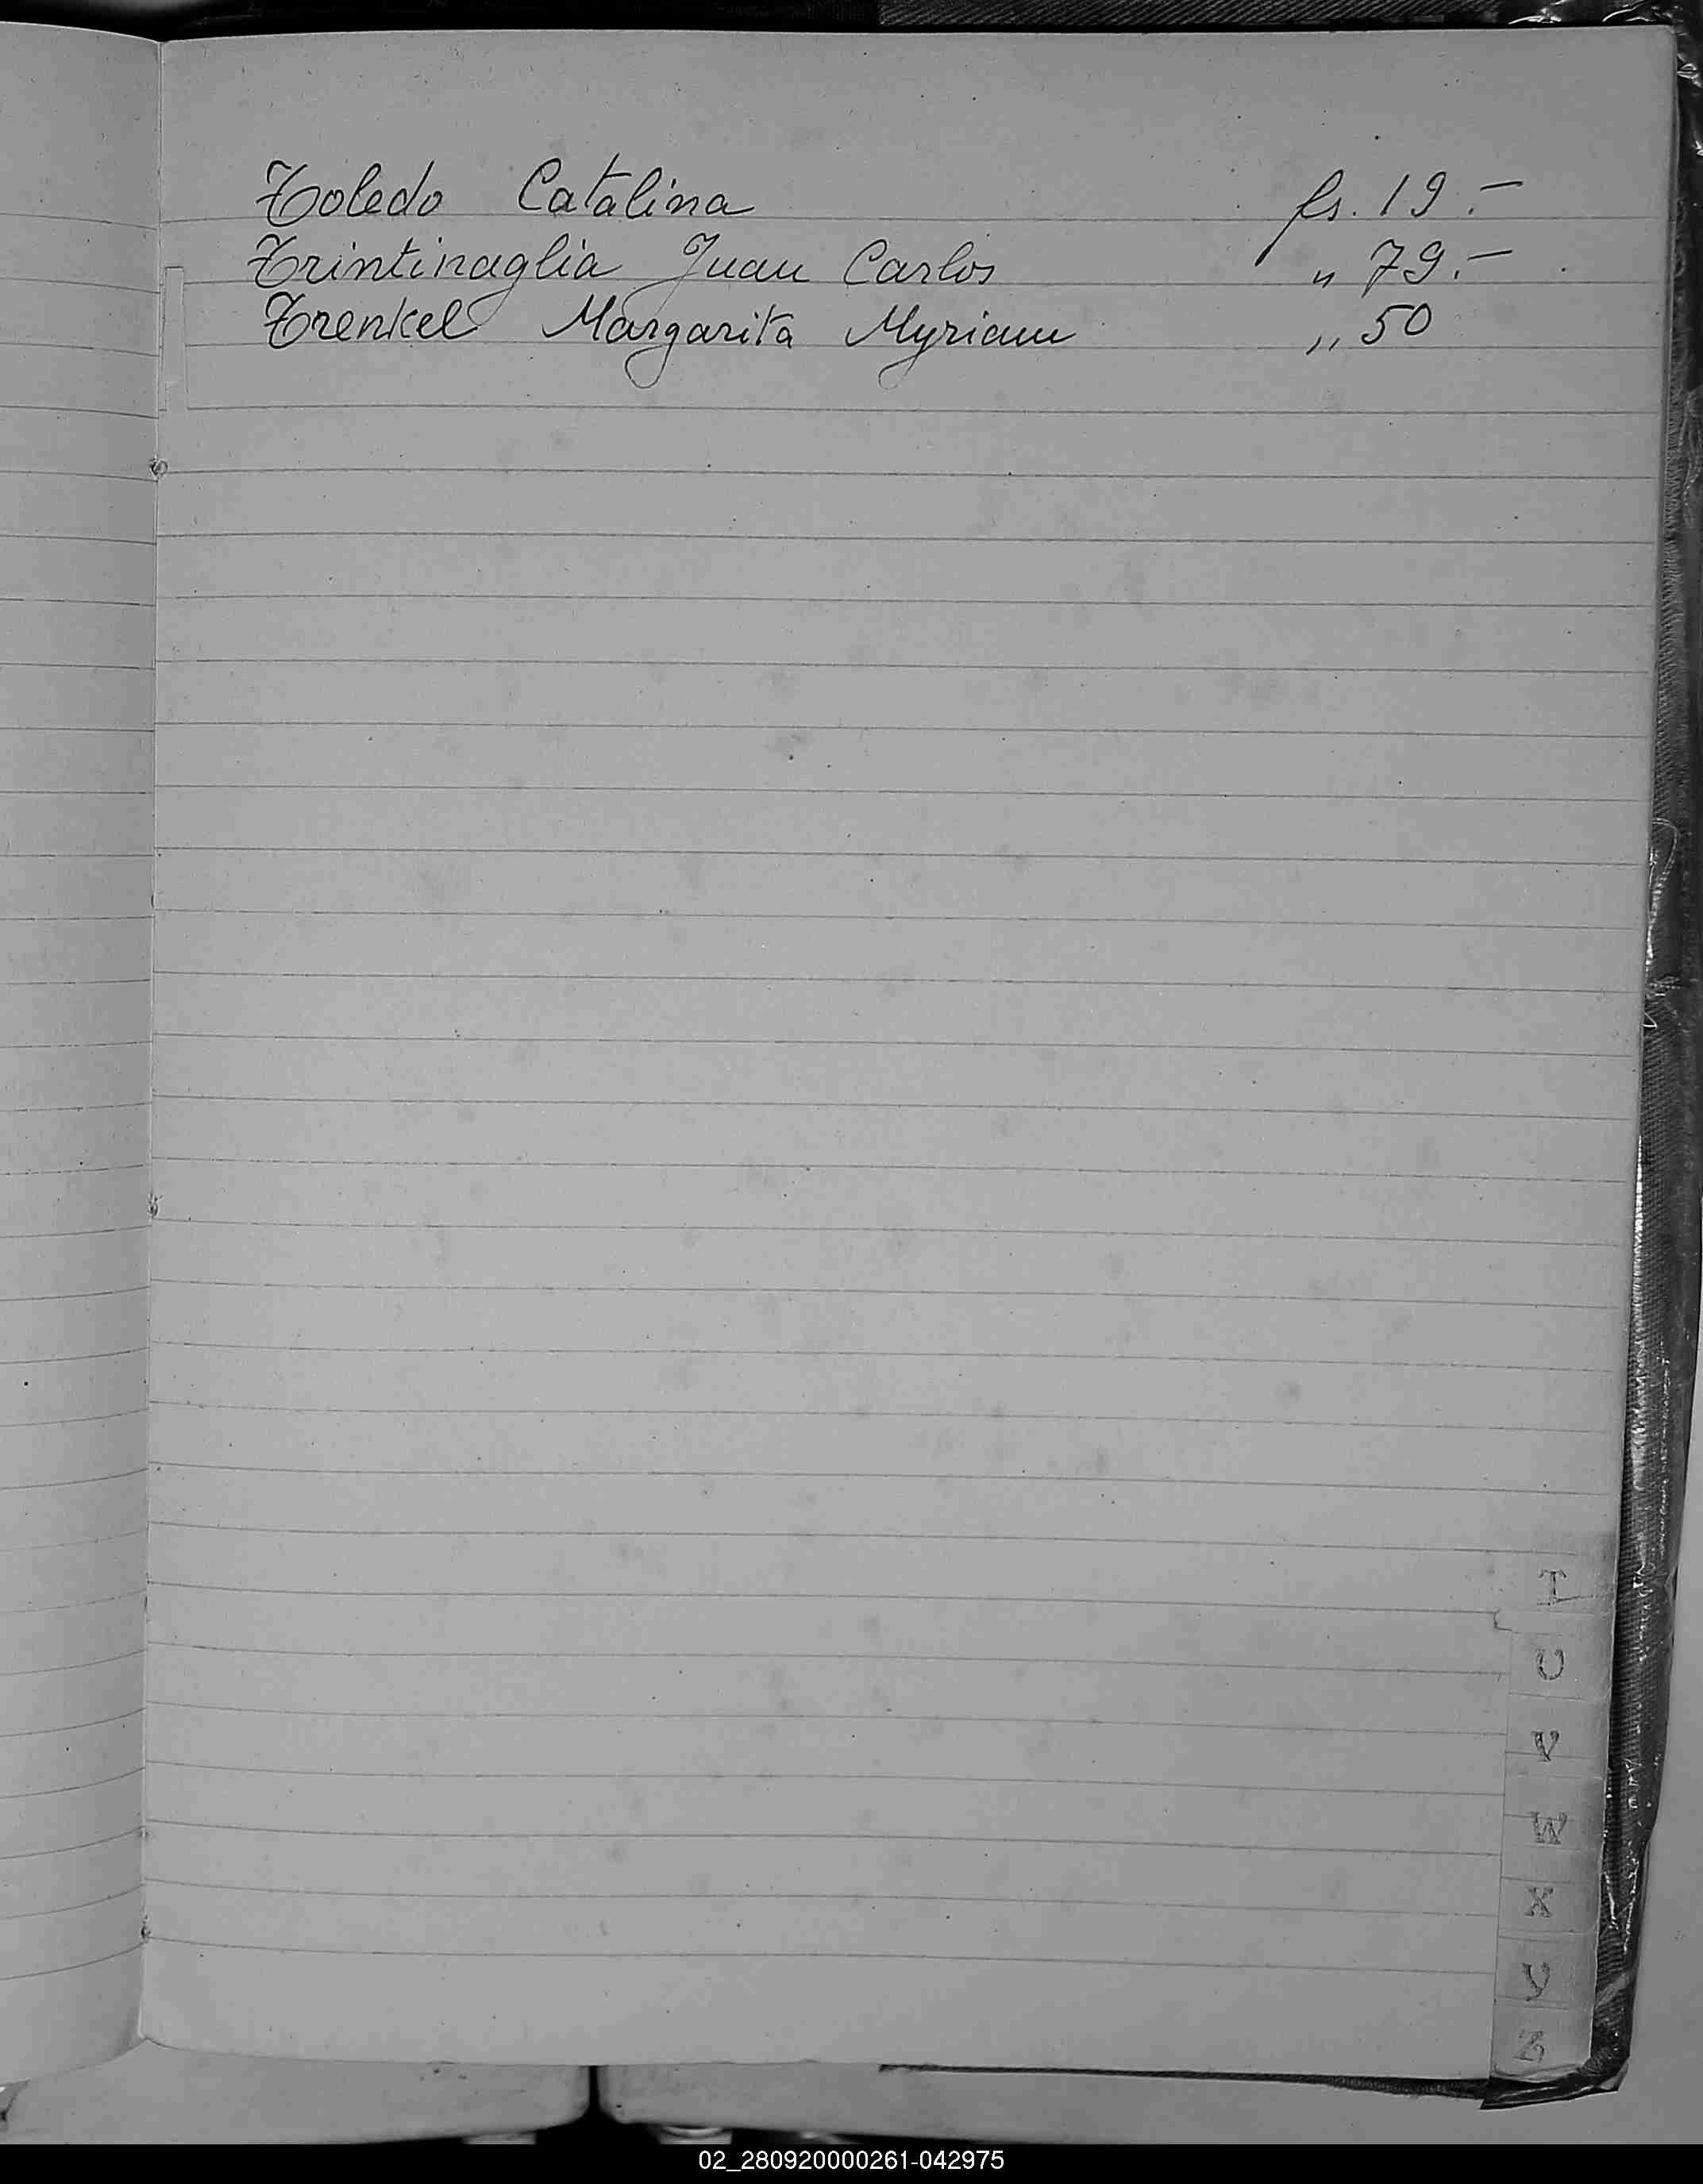 Toledo Catalina fs. 19.-
Trintinaglia Juan Carlos " 79.-
Trenkel Margarita Myriam " 50
T
U
V
W
X
Y
Z
02_280920000261-042975